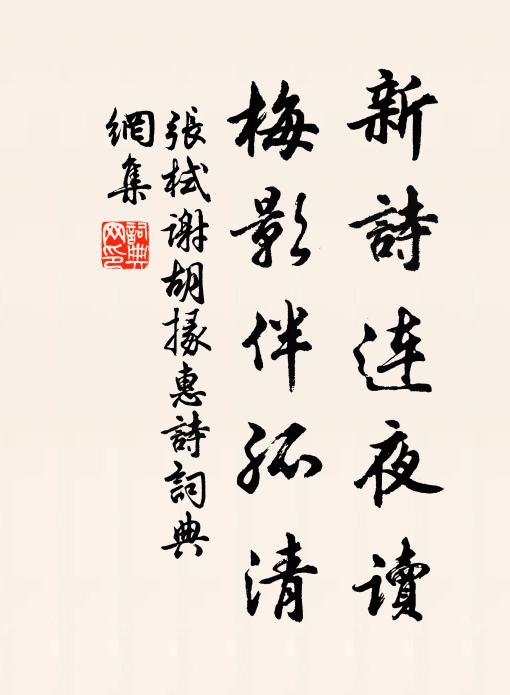 新詩連夜讀
梅影伴孤清
張栻謝胡掾惠詩詞典
網集
詞典
网印